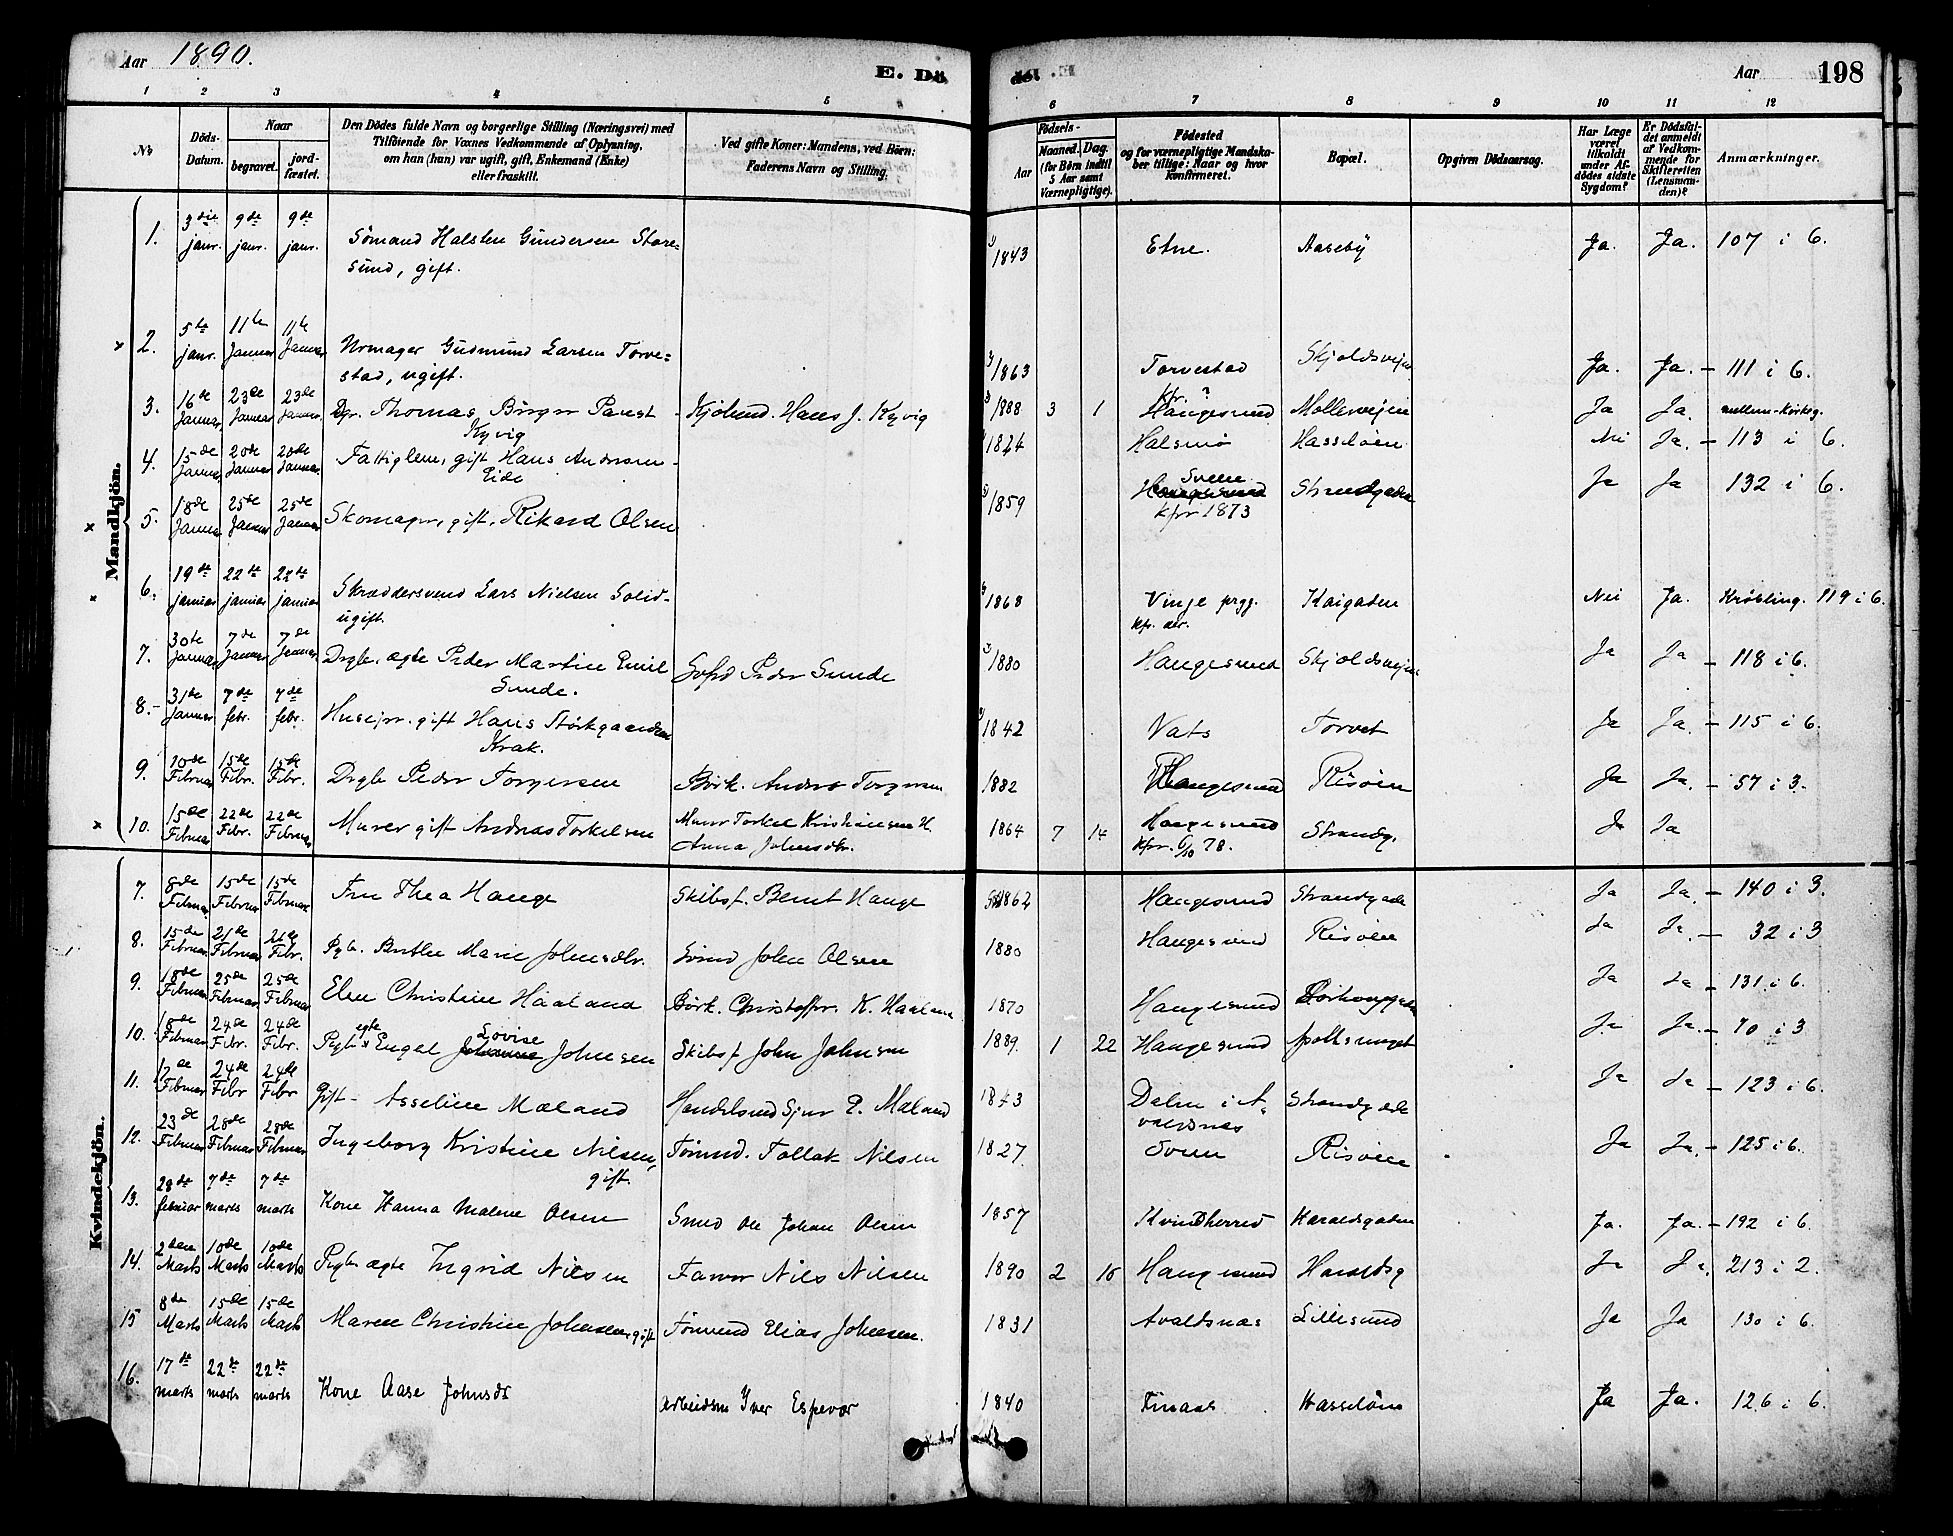 Aar 1890.
E. Dö
döde
Aar
198
1 2 3 4 5 6 7 8 9 10 11 12
No
Döds-Datum.
Naar
begravet.
jord-fæstet.
Den Dödes fulde Navn og borgerlige Stilling (Næringsvei) med
Tilföiende for Voxnes Vedkommende af Oplysning,
om han (hun) var ugift, gift, Enkemand (Enke)
eller fraskilt.
Ved gifte Koner: Mandens, ved Börn:
Faderens Navn og Stilling.
Födsels-
Aar
Maaned. Dag.
(for Börn indtil
5 Aar samt
Værnepligtige).
Födested
og for værnepligtige Mandska-
ber tillige: Naar og hvor
konfirmeret.
Bopæl.
Opgiven Dödsaarsag.
Har Læge
været
tilkaldt
under Af-
dödes sidste
Sygdom?
Er Dödsfal-
det anmeldt
af Vedkom-
mende for
Skifteretten
(Lensman-
den)?
Anmærkninger.
Mandkjön.
1. 3die janr. 9de janr. 9de janr. Sömand Halsten Gundersen Store-
sund, gift. 1843 Etne. Aaseby Ja. Ja. 107 i 6.
2. 5te janr. 11te Januar 11te Januar Urmager Gudmund Larsen Torve-
stad, ugift. 1863 Torvestad Skjoldsvejen Ja. Ja. — 111 i 6.
3. 16de Januar 23de Januar 23de Januar Dgr. Thomas Birger Parest
Kyvig Kjölmd. Hans J. Kyvig 1888 3 1 Haugesund Mölleveien Ja Ja.
4. 15de Januar 20de Januar 20de Januar Fattiglem, gift Hans Andersen
Eide 1824 Halsnö Hasselöen Nei Ja. — 113 i 6.
5. 18de Januar 25de Januar 25de Januar Skomager, gift, Rikard Olsen 1859 Sveen
kfr 1873 Strandgaden Ja Ja 132 i 6.
6. 19de januar 22de januar 22de januar Skræddersvend Lars Nielsen Solid-
ugift. 1868 Vinje prgj.
kfr. der. Kaigaden Nei Ja. Kröbling. 119 i 6.
7. 30te Januar 7de Januar 7de Januar Drgb. ægte Peder Martin Emil
Sunde. Peder Sunde 1880 Haugesund Skjoldsvejen Ja Ja — 118 i 6.
8. 31de Januar 7de febr. 7de febr. Husejer. gift Hans Störkgaardsen
Krak. 1842 Vats Torvet Ja Ja. — 115 i 6.
9. 10de Februar 15de Febr. 15de Febr. Drgb Peder Torgersen Börk. Anders Torgersen 1882 Haugesund Risöen Ja Ja. — 57 i 3.
10. 15de Februar 22de Febr. 22de Februar Murer gift Andreas Torkelsen Murer Torkel Kristiansen H.
Anna Johnsdtr. 1864 7 14 Haugesund
kfr. 6/10 78. Strandg. Ja Ja
Kvindekjön.
7. 8de Februar 15de Februar 15de Februar Fru Thea Hauge Skibsf. Bernt Hauge 1862 Haugesund Strandgade Ja Ja. — 140 i 3.
8. 15de Februar 21de Februar 21de Febr. Pgb. Berthe Marie Johnsdtr. Sömd John Olsen 1880 Haugesund Risöen Ja Ja. — 32 i 3
9. 18de Februar 25de Februar 25de Februar Elen Christine Haaland Börk. Christoffer K. Haaland 1870 Haugesund Ja Ja — 131 i 6.
10. 18de Februar 24de Febr. 24de Febr. Pgb ægte Engel Lovise Johnsen Skibsf John Johnsen 1889. 1 22 Haugesund Ja Ja. — 70 i 3
11. 17de Februar 24de Febr 24de Febr Gift — Asseline Mæland Handelsmd Sjur P. Mæland 1843 Dalen i A-
valdsnes Strandgade Ja Ja — 123 i 6.
12. 23de Februar 28de Februar 28de Februar Ingeborg Kristine Nilsen,
gift. Tömmd. Tollak Nilsen 1827. Sveen Risöen Ja Ja. — 125 i 6.
13. 28de februar 7de marts 7de marts Kone Hanna Malene Olsen Smed Ole Johan Olsen 1857 Kvindherred Haraldsgaden Ja. Ja. — 192 i 6.
14. 2den Marts 10de Marts 10de Marts Pgb ægte Ingrid Nilsen Farver Nils Nilsen 1890 2 16 Haugesund Haraldsg Ja Ja. 213 i 2.
15 8de Marts 15de Marts 15de Marts Maren Christine Johnsen, gift Tömmd Elias Johnsen. 1831 Avaldsnæs Lillesund Ja Ja 130 i 6.
16. 17de marts 22de marts 22de marts Kone Aase Johnsdt Arbeidsm Iver Espevær 1840 Finaas Hasselöen Ja Ja. 126 i 6.